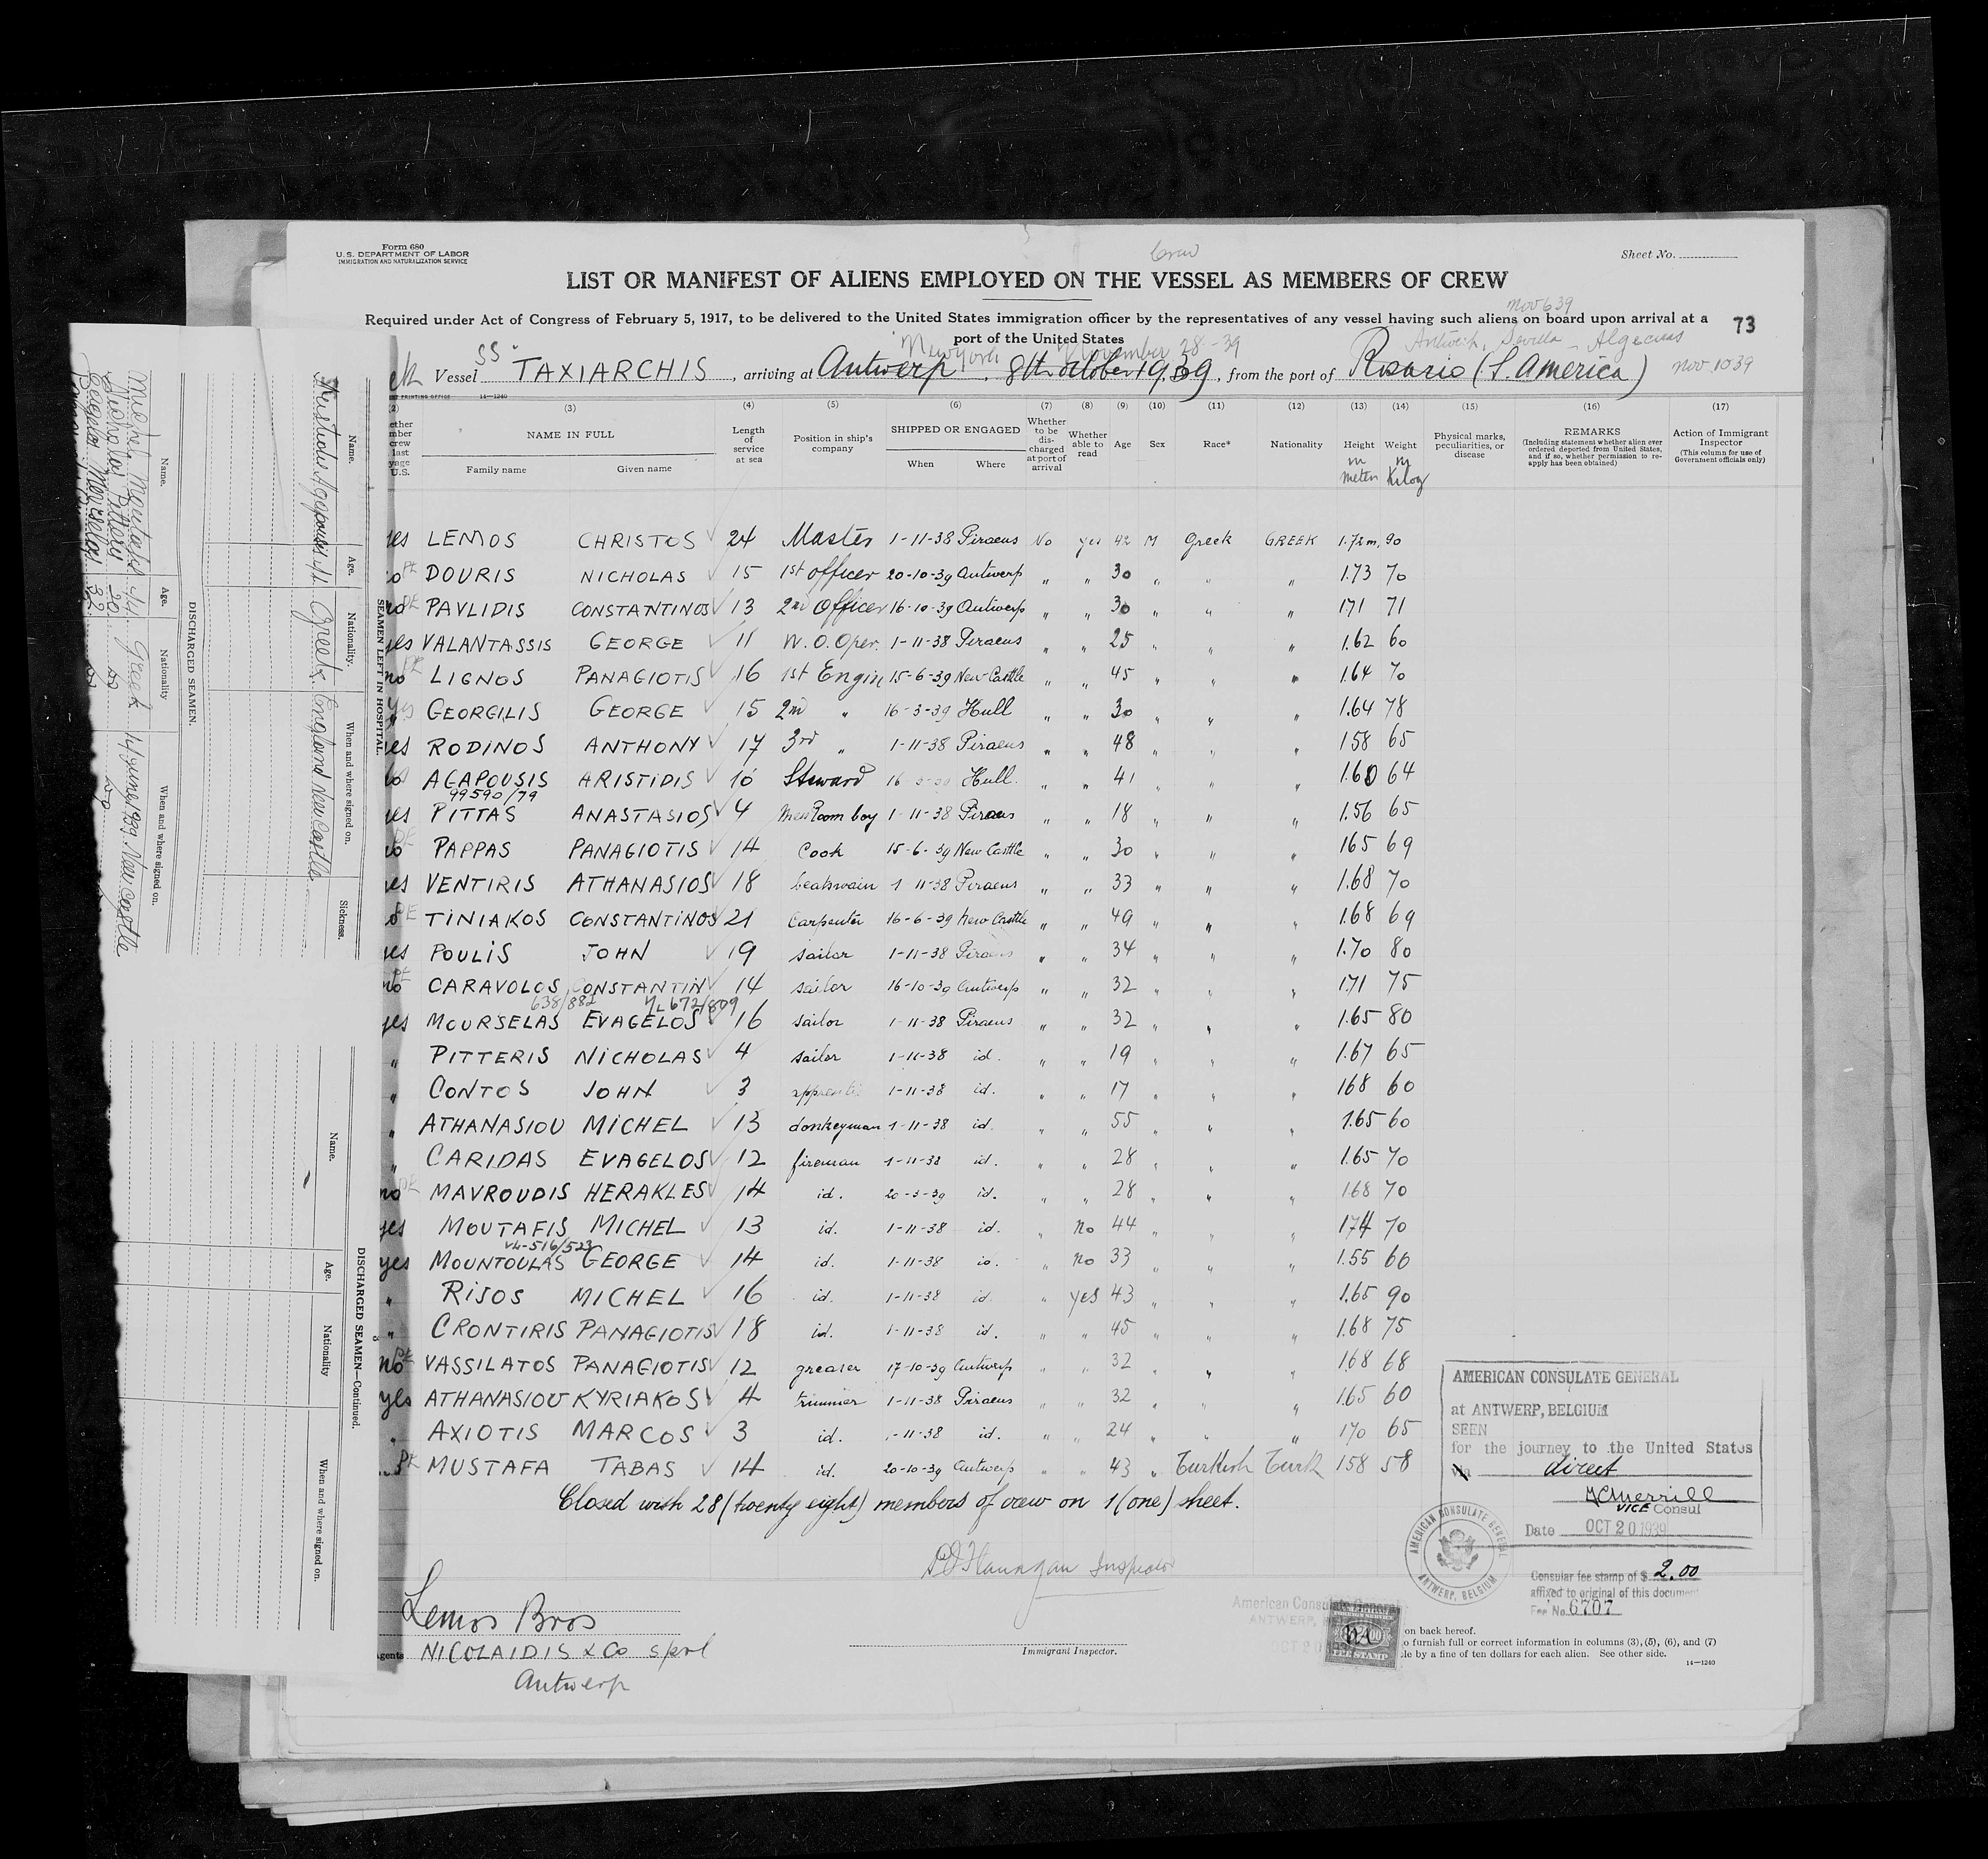 Form 680
U.S. DEPARTMENT OF LABOR
IMMIGRATION AND NATURALIZATION SERVICE
Crew
Sheet No.
LIST OR MANIFEST OF ALIENS EMPLOYED ON THE VESSEL AS MEMBERS OF CREW
Nov 6 39
Required under Act of Congress of February 5, 1917, to be delivered to the United States immigration officer by the representatives of any vessel having such aliens on board upon arrival at a
port of the United States
73
New York November 28-39 Antwerp, Sevilla - Algeciras
Vessel SS "TAXIARCHIS, arriving at Antwerp, 8th october 1939, from the port of Rosario (S. America) Nov 10 39
PRINTING OFFICE 14—1240
(2) (3) (4) (5) (6) (7) (8) (9) (10) (11) (12) (13) (14) (15) (16) (17)
NAME IN FULL
Family name Given name
Length of service at sea
Position in ship's company
SHIPPED OR ENGAGED
When Where
Whether to be discharged at port of arrival
Whether able to read
Age
Sex
Race*
Nationality
Height in meters
Weight in Kilog
Physical marks, peculiarities, or disease
REMARKS
(Including statement whether alien ever ordered deported from United States, and if so, whether permission to reapply has been obtained)
Action of Immigrant Inspector
(This column for use of Government officials only)
yes LEMOS CHRISTOS 24 Master 1-11-38 Piraeus No yes 42 M Greek GREEK 1.72m, 90
no DOURIS NICHOLAS 15 1st officer 20-10-39 Antwerp " " 30 " " " 1.73 70
no PAVLIDIS CONSTANTINOS 13 2nd Officer 16-10-39 Antwerp " " 30 " " " 1.71 71
yes VALANTASSIS GEORGE 11 W.O. Oper. 1-11-38 Piraeus " " 25 " " " 1.62 60
no LIGNOS PANAGIOTIS 16 1st Engin 15-6-39 New Castle " " 45 " " " 1.64 70
yes GEORGILIS GEORGE 15 2nd " 16-3-39 Hull " " 30 " " " 1.64 78
yes RODINOS ANTHONY 17 3rd " 1-11-38 Piraeus " " 48 " " " 158 65
no AGAPOUSIS ARISTIDIS 10 Steward 16 Hull " " 41 " " " 1.60 64
99590/79
yes PITTAS ANASTASIOS 4 Mess Room boy 1-11-38 Piraeus " " 18 " " " 1.56 65
no PAPPAS PANAGIOTIS 14 Cook 15-6-39 New Castle " " 30 " " " 165 69
yes VENTIRIS ATHANASIOS 18 boatswain 1 11-38 Piraeus " " 33 " " " 1.68 70
no TINIAKOS CONSTANTINOS 21 Carpenter 16-6-39 New Castle " " 49 " " " 1.68 69
yes POULIS JOHN 19 sailor 1-11-38 Piraeus " " 34 " " " 1.70 80
no CARAVOLOS CONSTANTIN 14 sailor 16-10-39 Antwerp " " 32 " " " 1.71 75
638/882 VL672/809
yes MOURSELAS EVAGELOS 16 sailor 1-11-38 Piraeus " " 32 " " " 1.65 80
" PITTERIS NICHOLAS 4 sailor 1-11-38 id. " " 19 " " " 1.67 65
" CONTOS JOHN 3 1-11-38 id. " " 17 " " " 168 60
" ATHANASIOU MICHEL 13 donkeyman 1-11-38 id. " " 55 " " " 1.65 60
" CARIDAS EVAGELOS 12 fireman 1-11-38 id. " " 28 " " " 1.65 70
no MAVROUDIS HERAKLES 14 id. 20-3-39 id. " " 28 " " " 168 70
yes MOUTAFIS MICHEL 13 id. 1-11-38 id. " No 44 " " " 174 70
VL-516/523
yes MOUNTOULAS GEORGE 14 id. 1-11-38 id. " No 33 " " " 1.55 60
" RISOS MICHEL 16 id. 1-11-38 id " yes 43 " " " 1.65 90
" CRONTIRIS PANAGIOTIS 18 id. 1-11-38 id. " " 45 " " " 1.68 75
No VASSILATOS PANAGIOTIS 12 greaser 17-10-39 Antwerp " " 32 " " " 168 68
yes ATHANASIOU KYRIAKOS 4 trimmer 1-11-38 Piraeus " " 32 " " " 165 60
" AXIOTIS MARCOS 3 id. 1-11-38 id. " " 24 " " " 170 65
MUSTAFA TABAS 14 id. 20-10-39 Antwerp " " 43 " Turkish Turk 158 58
Closed with 28 (twenty eight) members of crew on 1 (one) sheet.
Flannagan Inspector
Lemos Bros
NICOLAIDIS & Co sprl
Antwerp
Immigrant Inspector.
AMERICAN CONSULATE GENERAL
at ANTWERP, BELGIUM
SEEN
for the journey to the United States
via direct
Merrill
VICE Consul
Date OCT 20 1939
AMERICAN CONSULATE GENERAL
ANTWERP, BELGIUM
Consular fee stamp of $ 2.00
affixed to original of this document
Fee No. 6707
American Consulate General
ANTWERP,
OCT 20
FEE STAMP
on back hereof.
to furnish full or correct information in columns (3), (5), (6), and (7)
by a fine of ten dollars for each alien. See other side.
14—1240
SEAMEN LEFT IN HOSPITAL
Name. Age. Nationality. When and where signed on. Sickness.
Aristidis Agapousis 41 Greek England New Castle
DISCHARGED SEAMEN.
Name. Age. Nationality When and where signed on.
Michel Moutafis 44 Greek 14 June 1939 New Castle
Nicholas Pitteris 20 do do
Evagelos Mourselas 32 do
DISCHARGED SEAMEN—Continued.
Name. Age. Nationality When and where signed on.